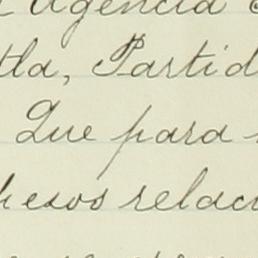 Agencia
tla, Partid
Que para
hesos relac